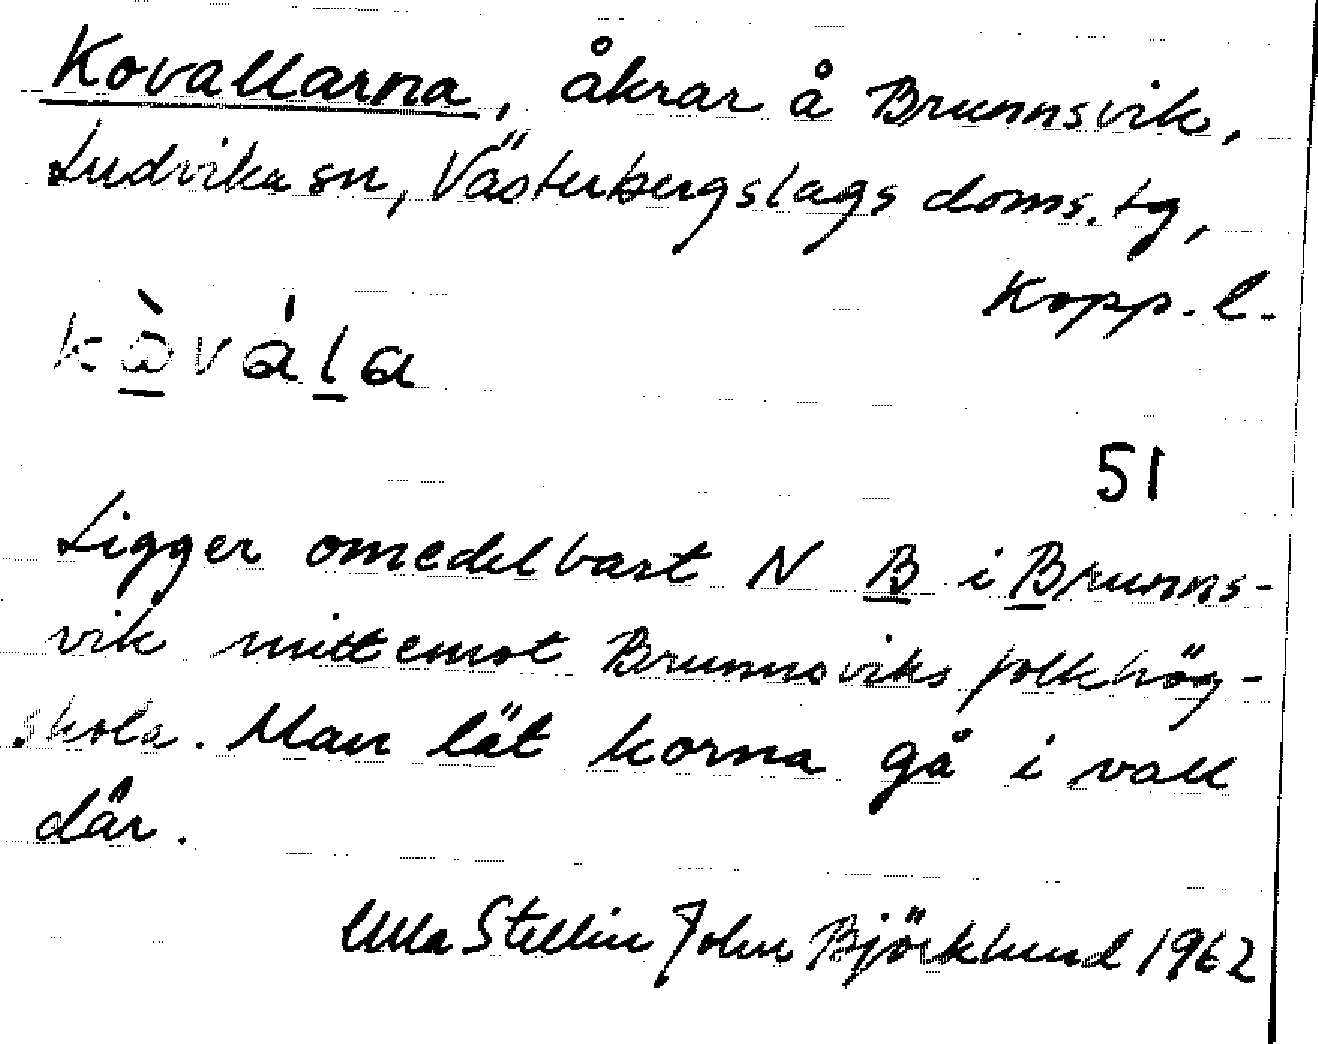 Kovallarna, åkrar å Brunnsvik,
Ludvika sn, Västerbergslags doms. tg,
Kopp. l.
kòvála
51
Ligger omedelbart N B i Brunns-
vik mittemot Brunnsviks folkhög-
skola. Man lät korna gå i vall
där.
Ulla Stellin John Björklund 1962